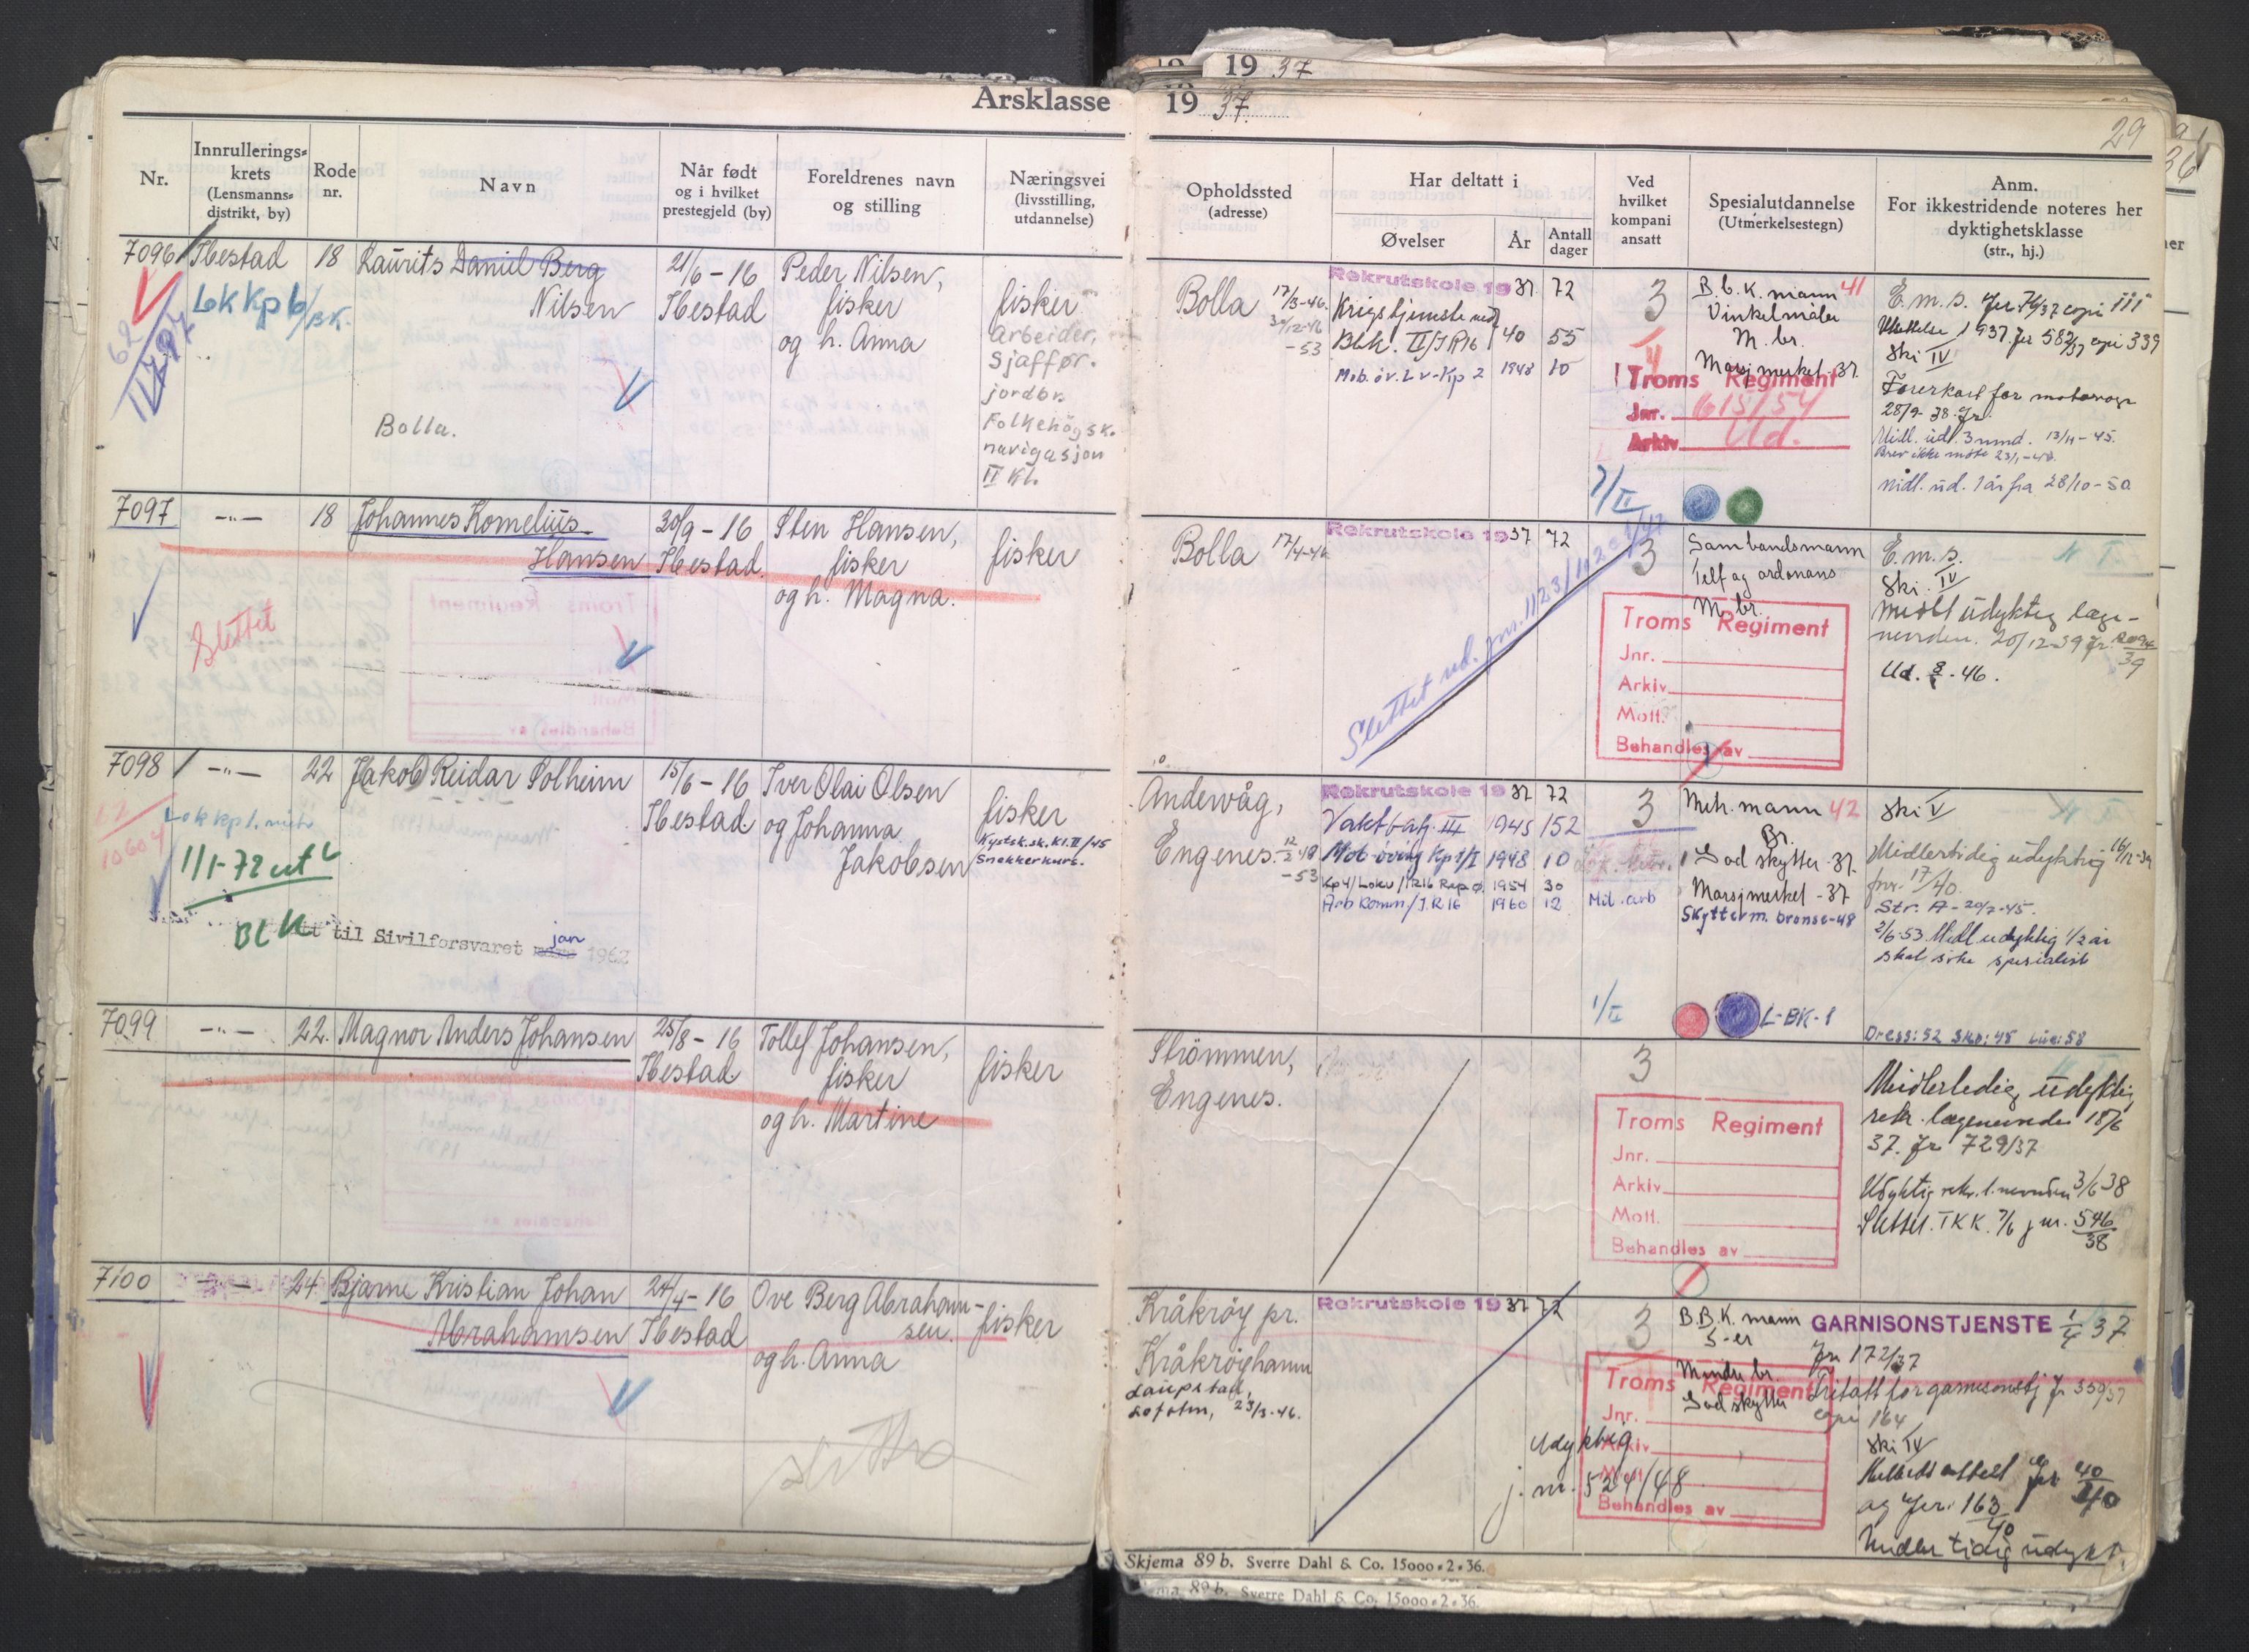 19 37
Årsklasse 19 37.
29
Nr.
Innrullerings-
krets
(Lensmanns-
distrikt, by)
Rode
nr.
Navn
Når født
og i hvilket
prestegjeld (by)
Foreldrenes navn
og stilling
Næringsvei
(livsstilling,
utdannelse)
Opholdssted
(adresse)
Har deltatt i
Øvelser
År
Antall
dager
Ved
hvilket
kompani
ansatt
Spesialutdannelse
(Utmerkelsestegn)
Anm.
For ikkestridende noteres her
dyktighetsklasse
(str., hj.)
7096 Ibestad 18 Laurits Daniel Berg
Nilsen
21/6 - 16
Ibestad
Peder Nilsen,
fisker
og h. Anna
fisker
Arbeider,
Sjaffør.
jordbr.
Folkehøgsk.
navigasjon
II Kl.
Lok Kp 6/BK.
Bolla.
Bolla 17/3-46.
-53
Rekrutskole 19 37 72
Krigstjeneste med
Bbk. II/IR16 40 55
Mob. øv. Lv-Kp 2 1948 10
3
B.b.K. mann 41
Vinkelmåler
M. br.
Marsjmerket-37.
Troms Regiment
Jnr. 615/54
Arkiv Ud.
E.m.p. Jnr 76/37 copi 111
1937 Jr 582/37 copi 339
Ski IV
Førerkort for motorvogn
28/9-38 Jr.
Midl. udl. 3 mnd. 13/11-45.
Brev ikke møte 23/1-48.
Midl. ud. 1 år fra 28/10-50
7/II
7097 -"- 18 Johannes Kornelius
Hansen
30/9 - 16
Ibestad.
Sten Hansen,
fisker
og h. Magna.
fisker
Slettet
Bolla 17/4-46
Rekrutskole 19 37 72
Slettet ud. jnr. 1123/1
3
Sambandsmann
Telf og ordonans
M. br.
Troms Regiment
Jnr.
Arkiv
Mott.
Behandles av
E.m.p.
Ski. IV
Midl udyktig læge-
nevnden. 20/12-39 Jr. 2094/39
Ud. 8/-46.
7098 -"- 22 Jakob Reidar Solheim
15/6 - 16
Ibestad
Iver Olai Olsen
og Johanna
Jakobsen
fisker
Kystsk.sk. Kl. II/45
Snekkerkurs.
10604
Lok kp 1.
1/1-72 ut
BLK
til Sivilforsvaret jan 1962
Åndervåg,
Engenes. 12/2-48
-53
Rekrutskole 19 37 72
Vaktbatj. III 1945 152
Mob-øving Kp 1/I 1948 10
Kp 4/Lokv/IR16 Rep ø. 1954 30
Arb Komm/I.R 16 1960 12
3
Mil. arb
Mitr. mann 42
Br.
God skytter-37.
Marsjmerket-37
Skytterm. bronse-48
L-BK-1
1/II
Ski V
Midlertidig udyktig 16/12-39
jnr. 17/40.
Str. A-20/7-45.
2/6-53 Midl udyktig 1/2 år
skal søke spesialist
Dress: 52 Sko: 45 Lue: 58
7099 -"- 22. Magnor Anders Johansen
25/8 - 16
Ibestad
Tollef Johansen,
fisker
og h. Martine
fisker
Strömmen,
Engenes.
3
Troms Regiment
Jnr.
Arkiv
Mott.
Behandles av
Midlertidig udyktig
rekr. lægenevnden 18/6
37. Jr 729/37
Udyktig rekr. l. nevnden 3/6 38
Slettet. TKK. 7/6 jnr. 546/38
7100 -"- 24. Bjarne Kristian Johan
Abrahamsen
24/4 - 16
Ibestad
Ove Berg Abraham-
sen.
og h. Anna
fisker
slettes
Kråkrøy pr.
Kråkrøyhamn
Laupstad,
Lofoten, 23/3-46.
Rekrutskole 19 37 72
Udyktig
j. nr. 524/48
3
B.B.K. mann
5-er
Mindre br.
God skytter
Troms Regiment
Jnr.
Arkiv
Mott.
Behandles av
GARNISONSTJENSTE 1/4 37
Jnr 172/37
Fritatt for garnisonstj Jr 359/37
copi 164
Ski IV
Jnr 40/40
og Jnr. 163/40
Midlertidig udykt.
Skjema 89 b. Sverre Dahl & Co. 15000 • 2 • 36.
89 b. Sverre Dahl & Co. 15000 • 2 • 36.